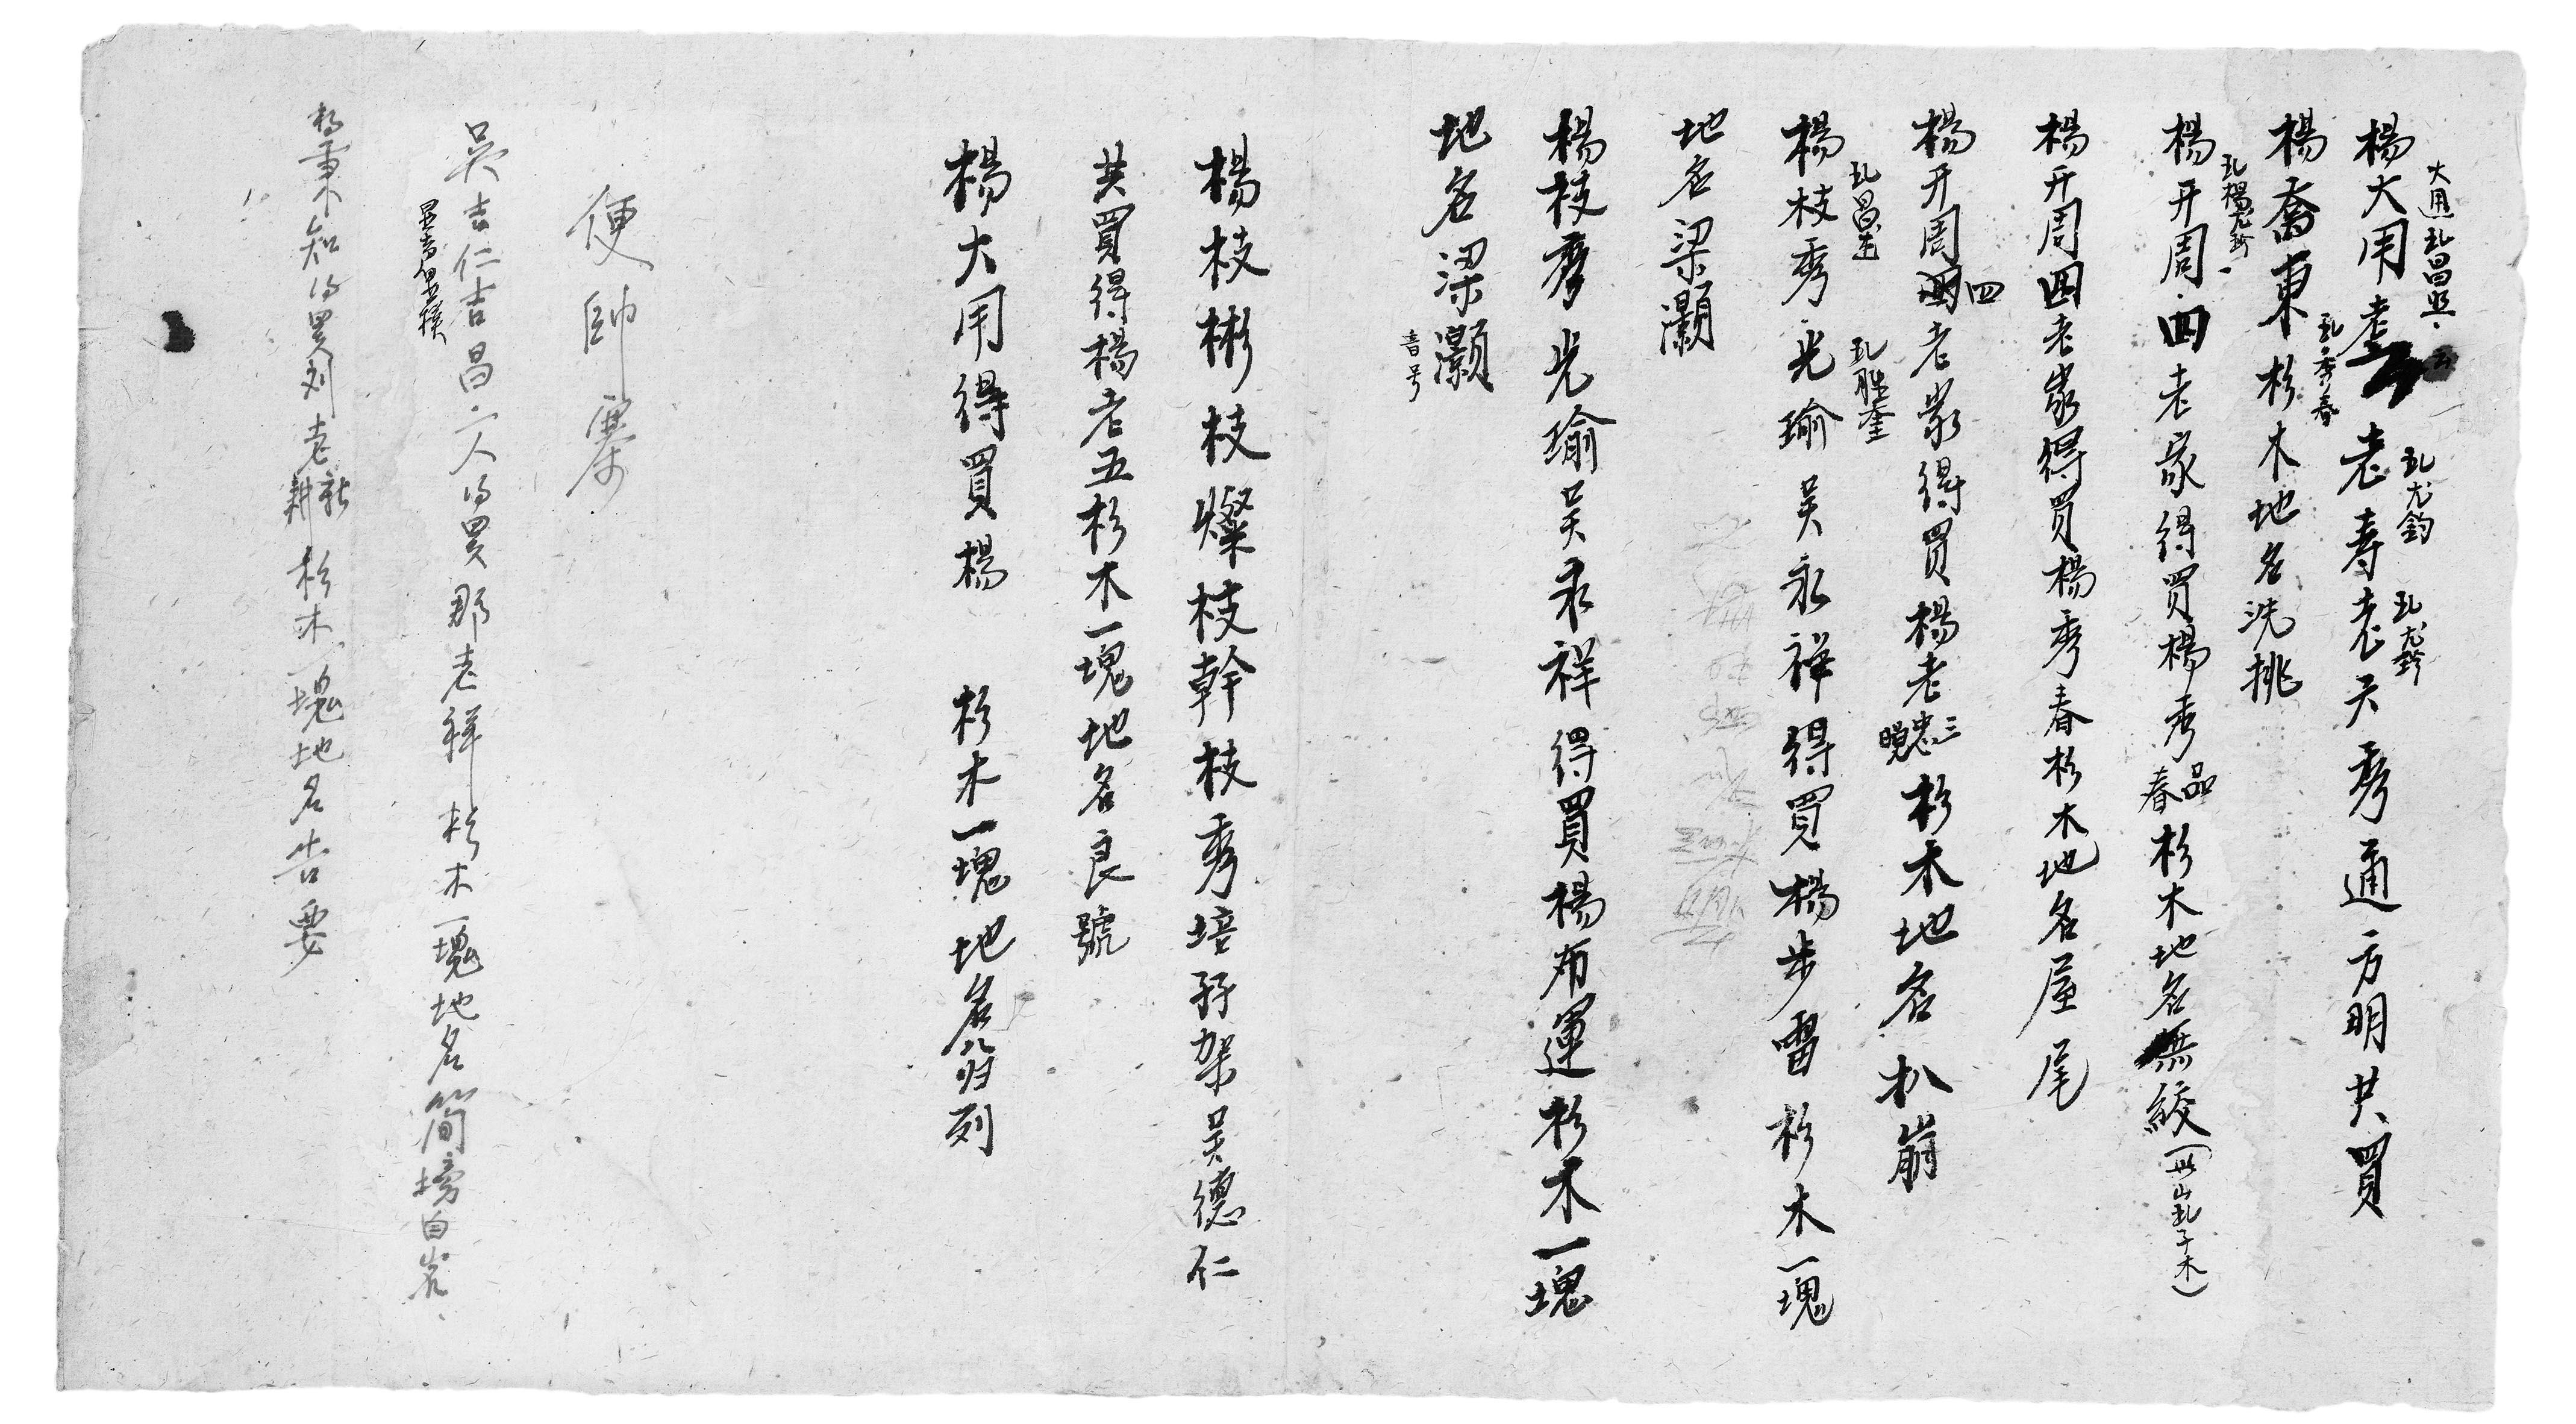 大通乩昌照
楊大用老五老壽老天秀通方明共買
乩光鈞
乩光玲
楊喬東杉木地名洗挑
乩秀春
楊开周四老家得買楊秀品春杉木地名無綘(此山乩子木)
楊开周四老家得買楊秀春杉木地名屋尾
楊开周四老家得買楊老忠三晚杉木地名扒崩
乩昌
乩胜奎
楊枝秀光瑜吴永祥得買楊步雷杉木一塊
地名梁灝
楊枝秀光瑜吴永祥得買楊布運杉木一塊
地名梁灝
音号
楊枝彬枝燦枝幹枝秀培孖架吴德仁
共買得楊老五杉木一塊地名良號
楊大用得買楊 杉木一塊地名翁归列
便帥寨
吴吉仁吉昌二人得買那老祥杉木一塊地名简塝白岩
楊秉知得買刘老新耕杉木一塊地名告要